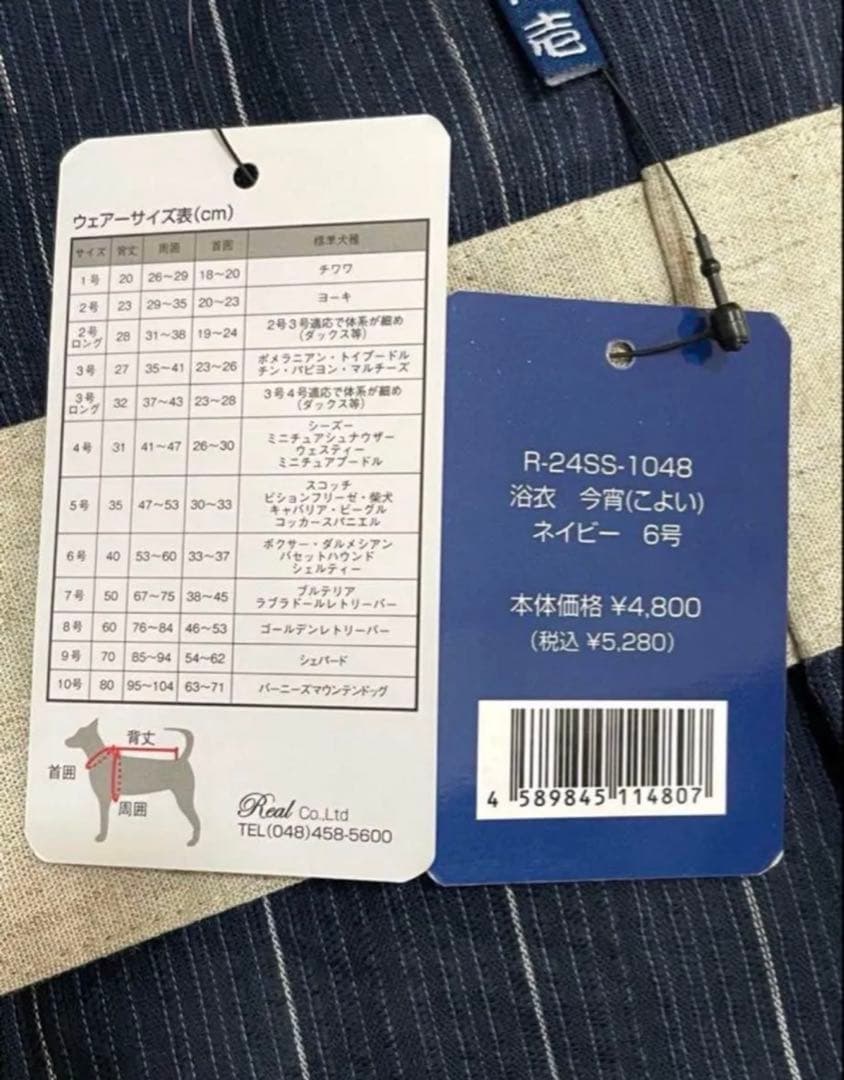 壱
ウェアーサイズ表(cm)
サイズ 背丈 周囲 首囲 標準犬種
1号 20 26~29 18~20 チワワ
2号 23 29~35 20~23 ヨーキ
2号ロング 28 31~38 19~24 2号3号適応で体系が細め(ダックス等)
3号 27 35~41 23~26 ポメラニアン・トイプードル チン・パピヨン・マルチーズ
3号ロング 32 37~43 23~28 3号4号適応で体系が細め(ダックス等)
4号 31 41~47 26~30 シーズー ミニチュアシュナウザー ウェスティー ミニチュアプードル
5号 35 47~53 30~33 スコッチ ビションフリーゼ・柴犬 キャバリア・ビーグル コッカースパニエル
6号 40 53~60 33~37 ボクサー・ダルメシアン バセットハウンド シェルティー
7号 50 67~75 38~45 ブルテリア ラブラドールレトリーバー
8号 60 76~84 46~53 ゴールデンレトリーバー
9号 70 85~94 54~62 シェパード
10号 80 95~104 63~71 バーニーズマウンテンドッグ
背丈
首囲
周囲
Real Co.,Ltd
TEL(048)458-5600
R-24SS-1048
浴衣 今宵(こよい)
ネイビー 6号
本体価格 ¥4,800
(税込 ¥5,280)
4 589845 114807